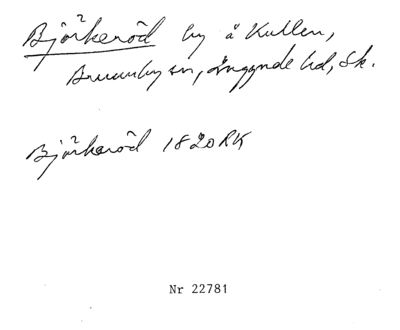 Björkeröd by å Kullen,
Brunnby sn, Luggude hd, Sk.
Björkeröd 1820 RK
Nr 22781